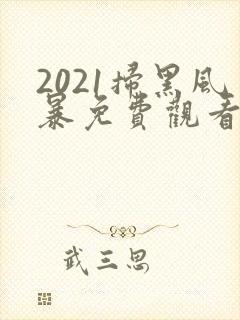 2021掃黑风
暴免費觀看
武三思